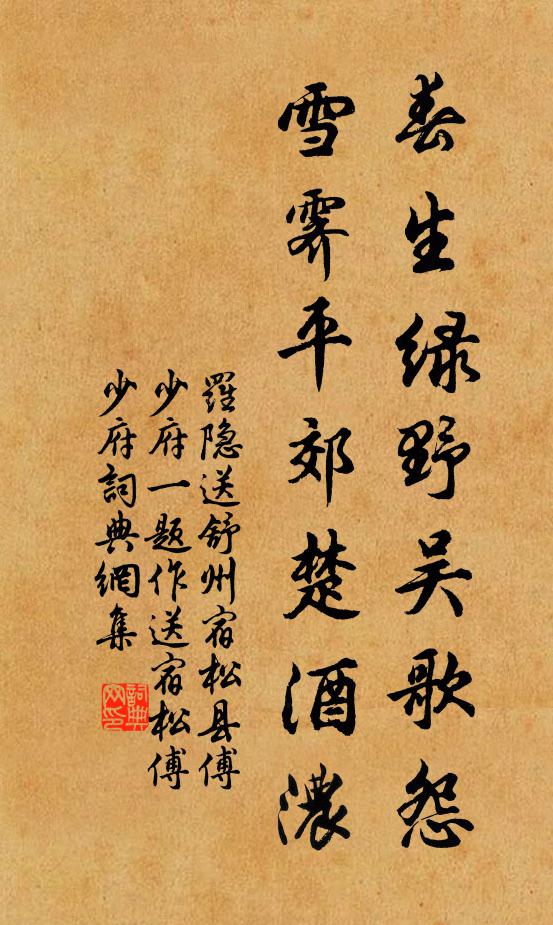 春生绿野吴歌怨
雪霁平郊楚酒浓
羅隐送舒州宿松县傅
少府一题作送宿松傅
少府詞典網集
詞典
网印